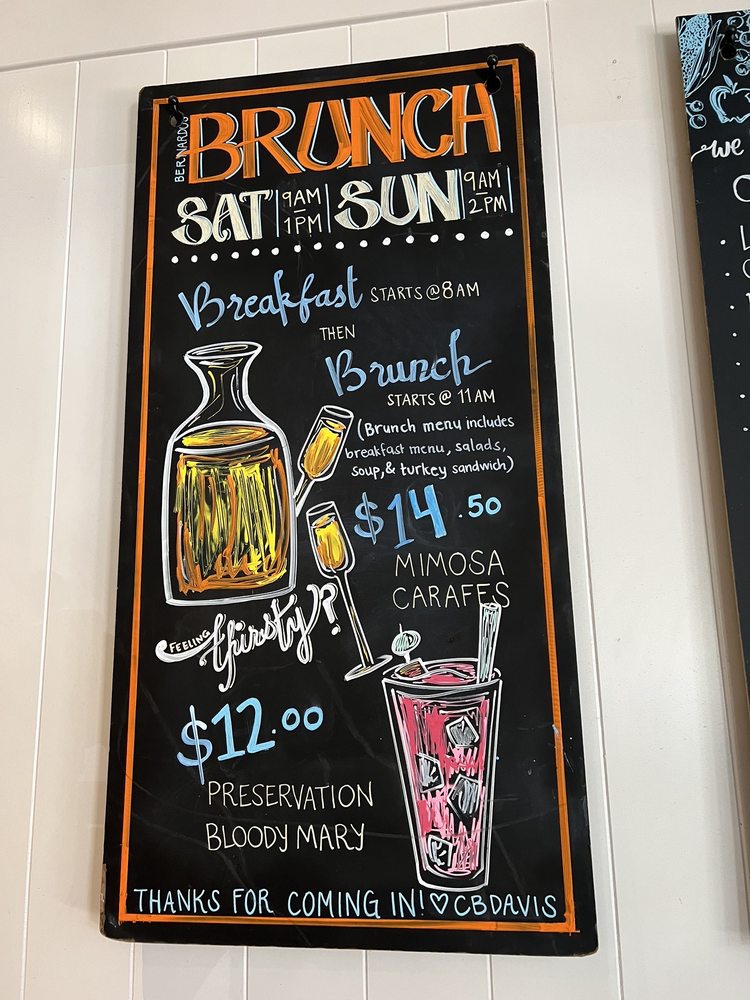 BERNARDOS
BRUNCH
SAT 9AM – 1PM SUN 9AM – 2PM
Breakfast STARTS @ 8AM
THEN
Brunch
STARTS @ 11AM
(Brunch menu includes
breakfast menu, salads,
soup, & turkey sandwich)
$14.50
MIMOSA
CARAFES
FEELING thirsty?
$12.00
PRESERVATION
BLOODY MARY
THANKS FOR COMING IN! ♡ CBDAVIS
we